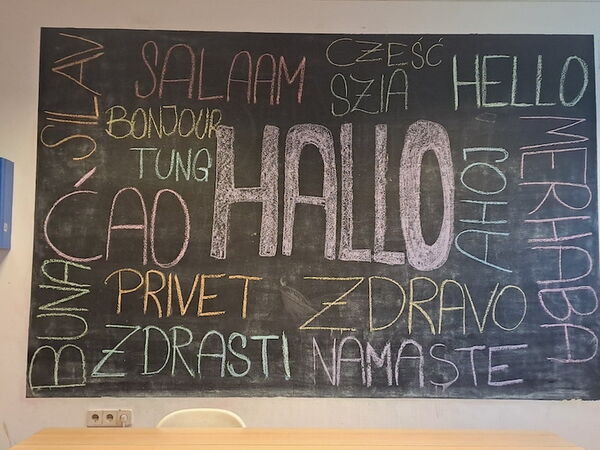 SILAV
SALAAM
CZEŚĆ
SZIA
HELLO
BONJOUR
TUNG
HALLO
AHOJ
MERHABA
ĆAO
BUNA
PRIVET
ZDRAVO
ZDRASTI
NAMASTE